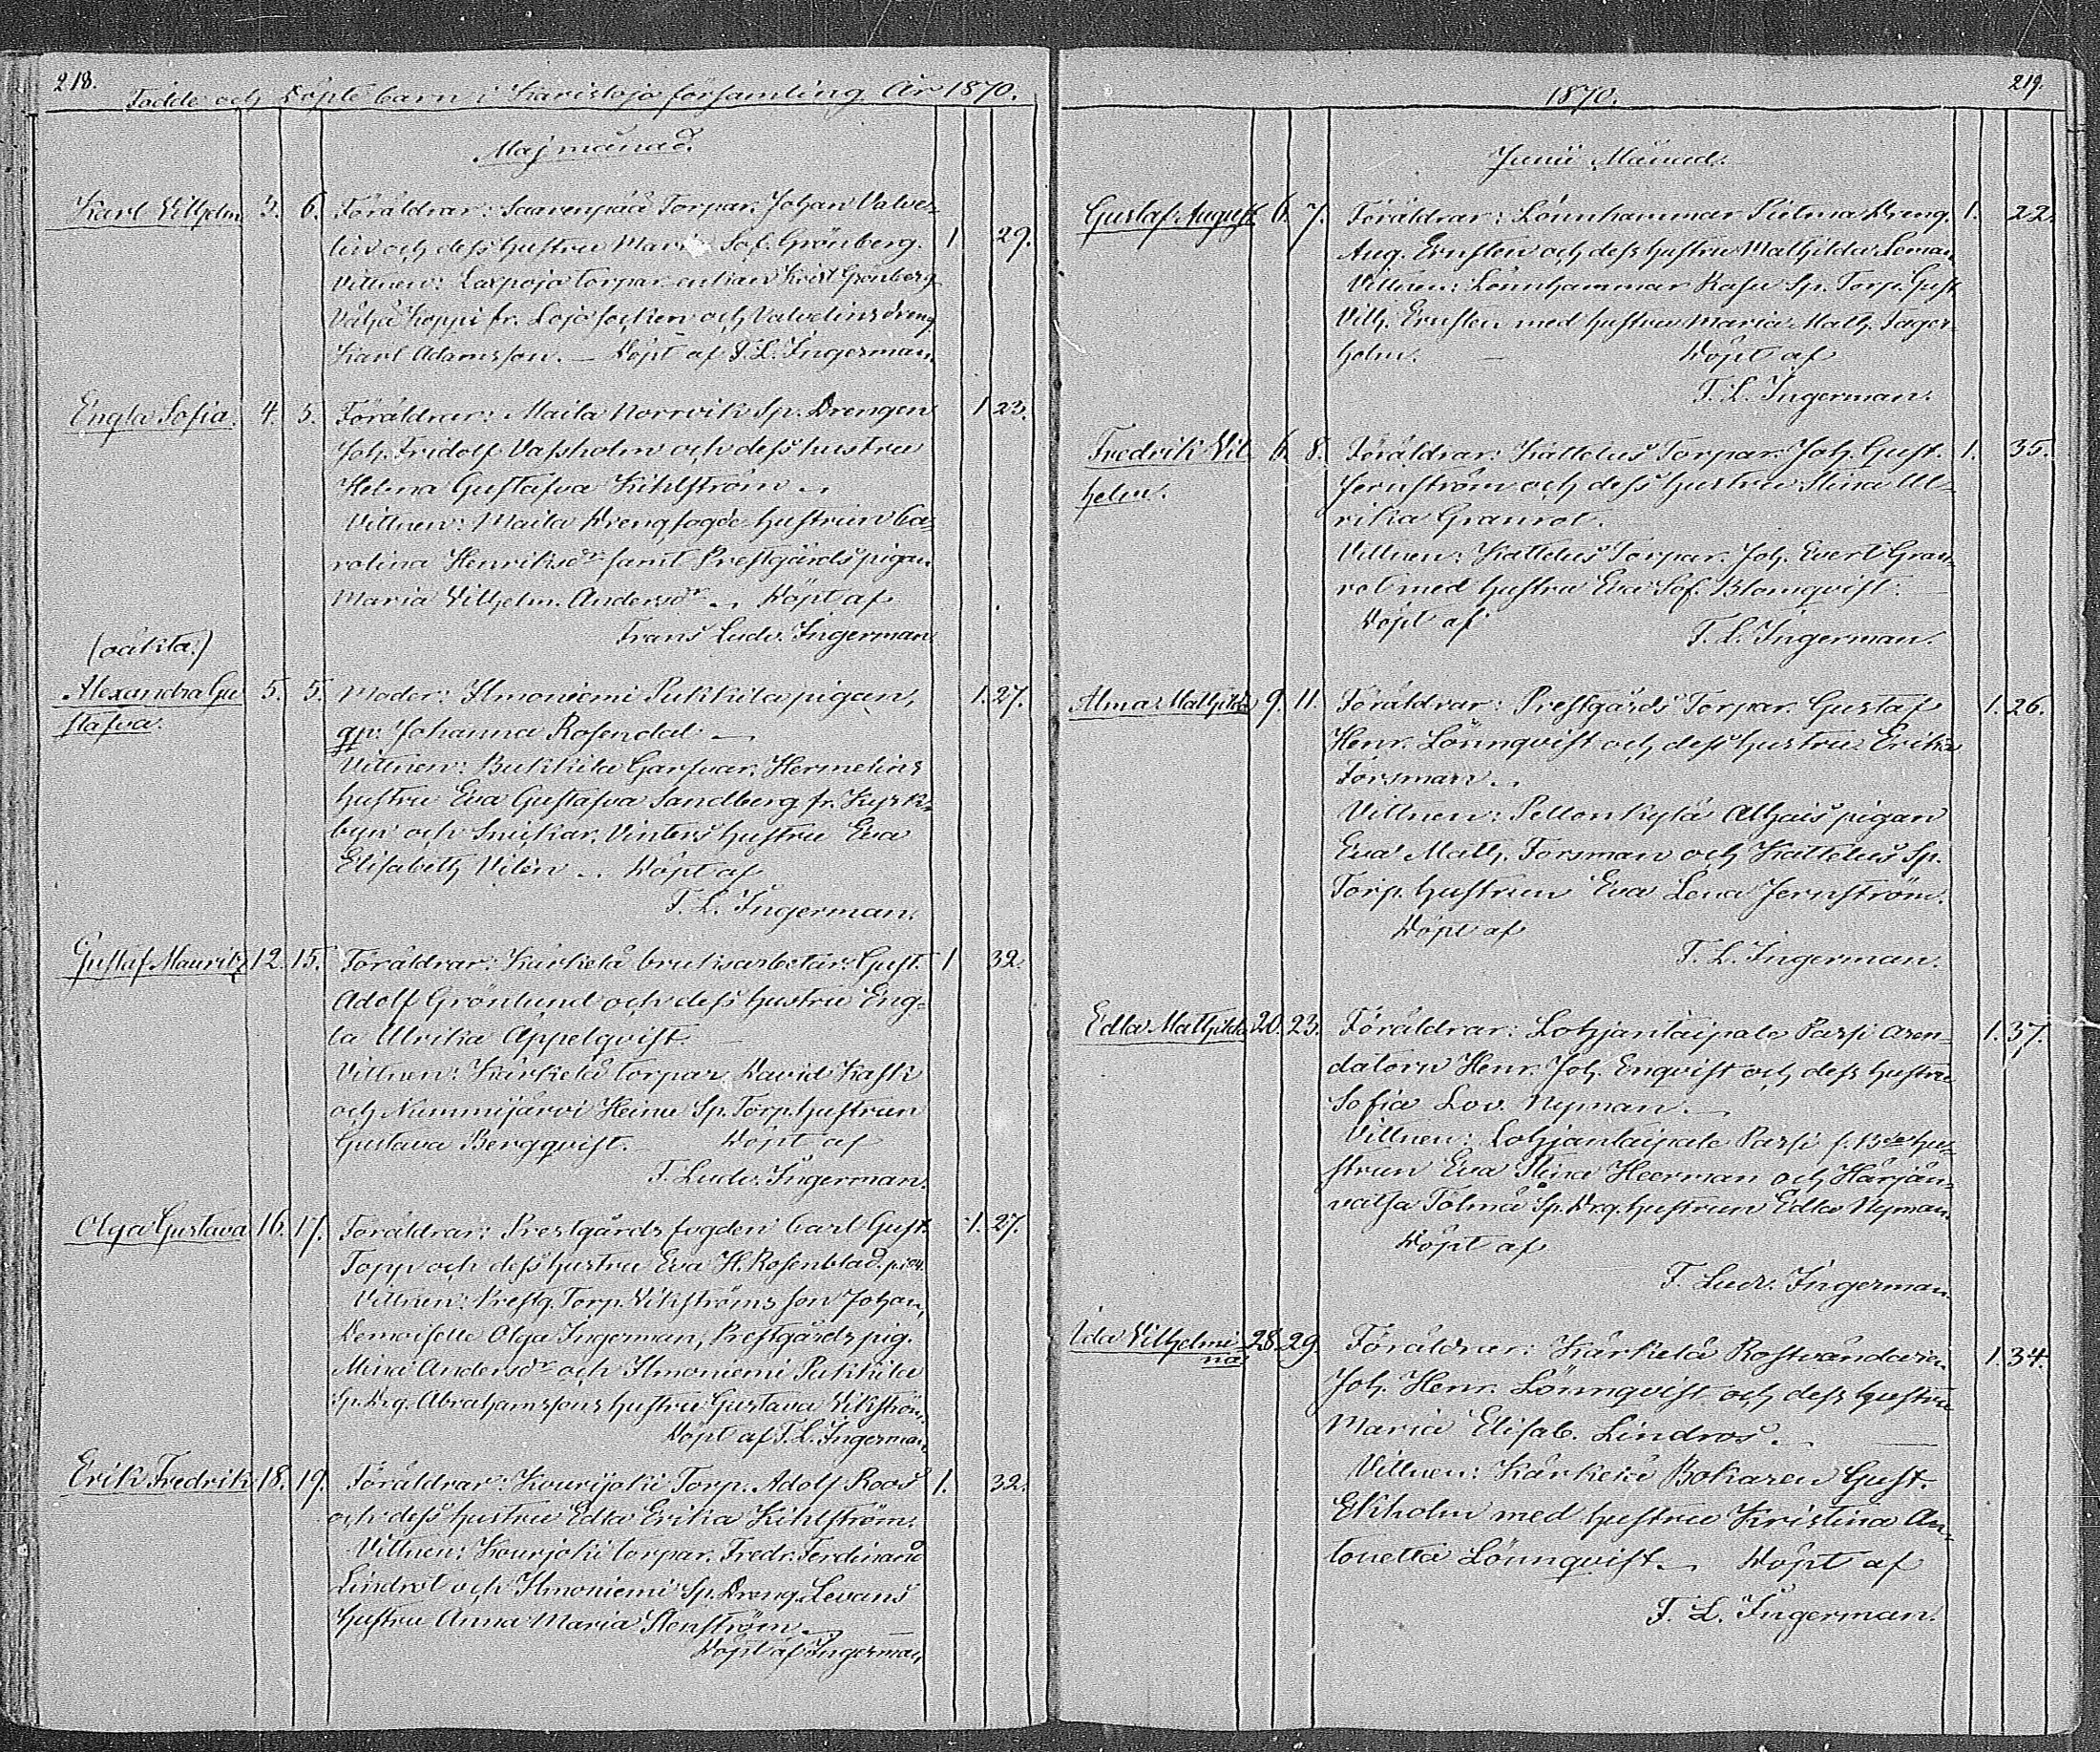 218.
Födde och Döpte barn i Karislojo församling År 1870.
Maj månad.
Karl Vilhelm 3. 6. Föräldrar: Saarenpää Torpar. Johan Valve-
lin och dess hustru Maria Sof. Grönberg. 1 29.
Vittnen: Laxpojo torpar Krist Grönberg
Koppi fr. Lojo socken och Valvelins dreng
Karl Adamsson. — Döpt af F. L. Ingerman.
Engla Sofia. 4. 5. Föräldrar: Maila Norrvik Sp. Drengen 1 23.
Joh. Fridolf Vassholm och dess hustru
Helena Gustafva Kihlström
Vittnen: Maila Drengfogde hustrun Ca-
rolina Henriksdr samt Prestgårdspigan
Maria Vilhelm. Andersdr Döpt af
Frans Ludv. Ingerman
(oäkta.)
Alexandra Gu- 5. 5. Moder: Ilmoniemi Pukkila pigan, 1. 27.
stafva. Johanna Rosendal —
Vittnen: Pukkila Garfvar. Hermelins
hustru Eva Gustafva Sandberg fr. Kyrk-
byn och Snickar. Vinters hustru Eva
Elisabeth Vilén Döpt af
F. L. Ingerman.
Gustaf Mauritz 12. 15. Föräldrar: Kärkelä bruksarbetar. Gust. 1 32.
Adolf Grönlund och dess hustru Eng-
la Ulrika Appelqvist.
Vittnen: Kärkelä torpar David Kask
och Nummijärvi Heinu Sp. Torp. hustrun
Gustava Bergqvist. — Döpt af
F. Ludv. Ingerman.
Olga Gustava 16. 17. Föräldrar: Prestgårds fogden Carl Gust. 1. 27.
Topp och dess hustru Eva H. Rosenblad.
Vittnen: Prestg. Torp. Vikströms son Johan,
Demoiselle Olga Ingerman, Prestgårds pig.
Mina Andersdr och Ilmoniemi Pukkila
Sp. Drg. Abrahamssons hustru Gustava Vikström.
Döpt af F. L. Ingerman.
Erik Fredrik 18. 19. Föräldrar: Kourijoki Torp. Adolf Roos 1. 32.
och dess hustru Edla Erika Kihlström.
Vittnen: Kourjoki torpar. Fredr. Ferdinand
Lindrot och Ilmoniemi Sp. Dreng. Levans
hustru Anna Maria Stenström —
Döpt af Ingerman,
219.
1870.
Junii Månad.
Gustaf August 6. 7. Föräldrar: Lönnhammar Pietma Dreng. 1. 22.
Aug. Ernsten och dess hustru Mathilda Leman
Vittnen: Lönnhammar Sp. Torp. Gust
Vilh. Ernsten med hustru Maria Math. Fager-
holm. — Döpt af
F. L. Ingerman.
Fredrik Vil- 6. 8. Föräldrar: Kattelus Torpar. Joh. Gust. 1. 35.
helm. Jernström och dess hustru Stina Ul-
rika Granrot.
Vittnen: Kattelus Torpar. Joh. Evert Gran-
rot med hustru Eva Sof. Blomqvist. —
Döpt af
F. L. Ingerman.
Alma Mathilda 9. 11. Föräldrar: Prestgårds Torpar. Gustaf 1. 26.
Henr. Lönnqvist och dess hustru Erika
Forsman.
Vittnen: Pellonkylä Alhais pigan
Eva Math. Forsman och Kattelus Sp.
Torp. hustrun Eva Lena Jernström.
Döpt af
F. L. Ingerman.
Edla Mathilda 20. 23. Föräldrar: Lohjantaipale Passi aren- 1. 37.
datorn Henr. Joh. Enqvist och dess hustru
Sofia Lov. Nyman. —
Vittnen: Lohjantaipale Passi hu-
strun Eva Stina Heerman och Härjän-
vatsa Tölmä Sp. Drg. hustrun Edla Nyman.
Döpt af
F. Ludv. Ingerman.
Ida Vilhelmi- 28. 29. Föräldrar: Kärkelä Rostvändaren 1. 34.
na Joh. Henr. Lönnqvist och dess hustru
Maria Elisab. Lindros. —
Vittnen: Kärkelä Bokaren Gust.
Ekholm med hustru Kristina An-
tonetta Lönnqvist. — Döpt af
F. L. Ingerman.